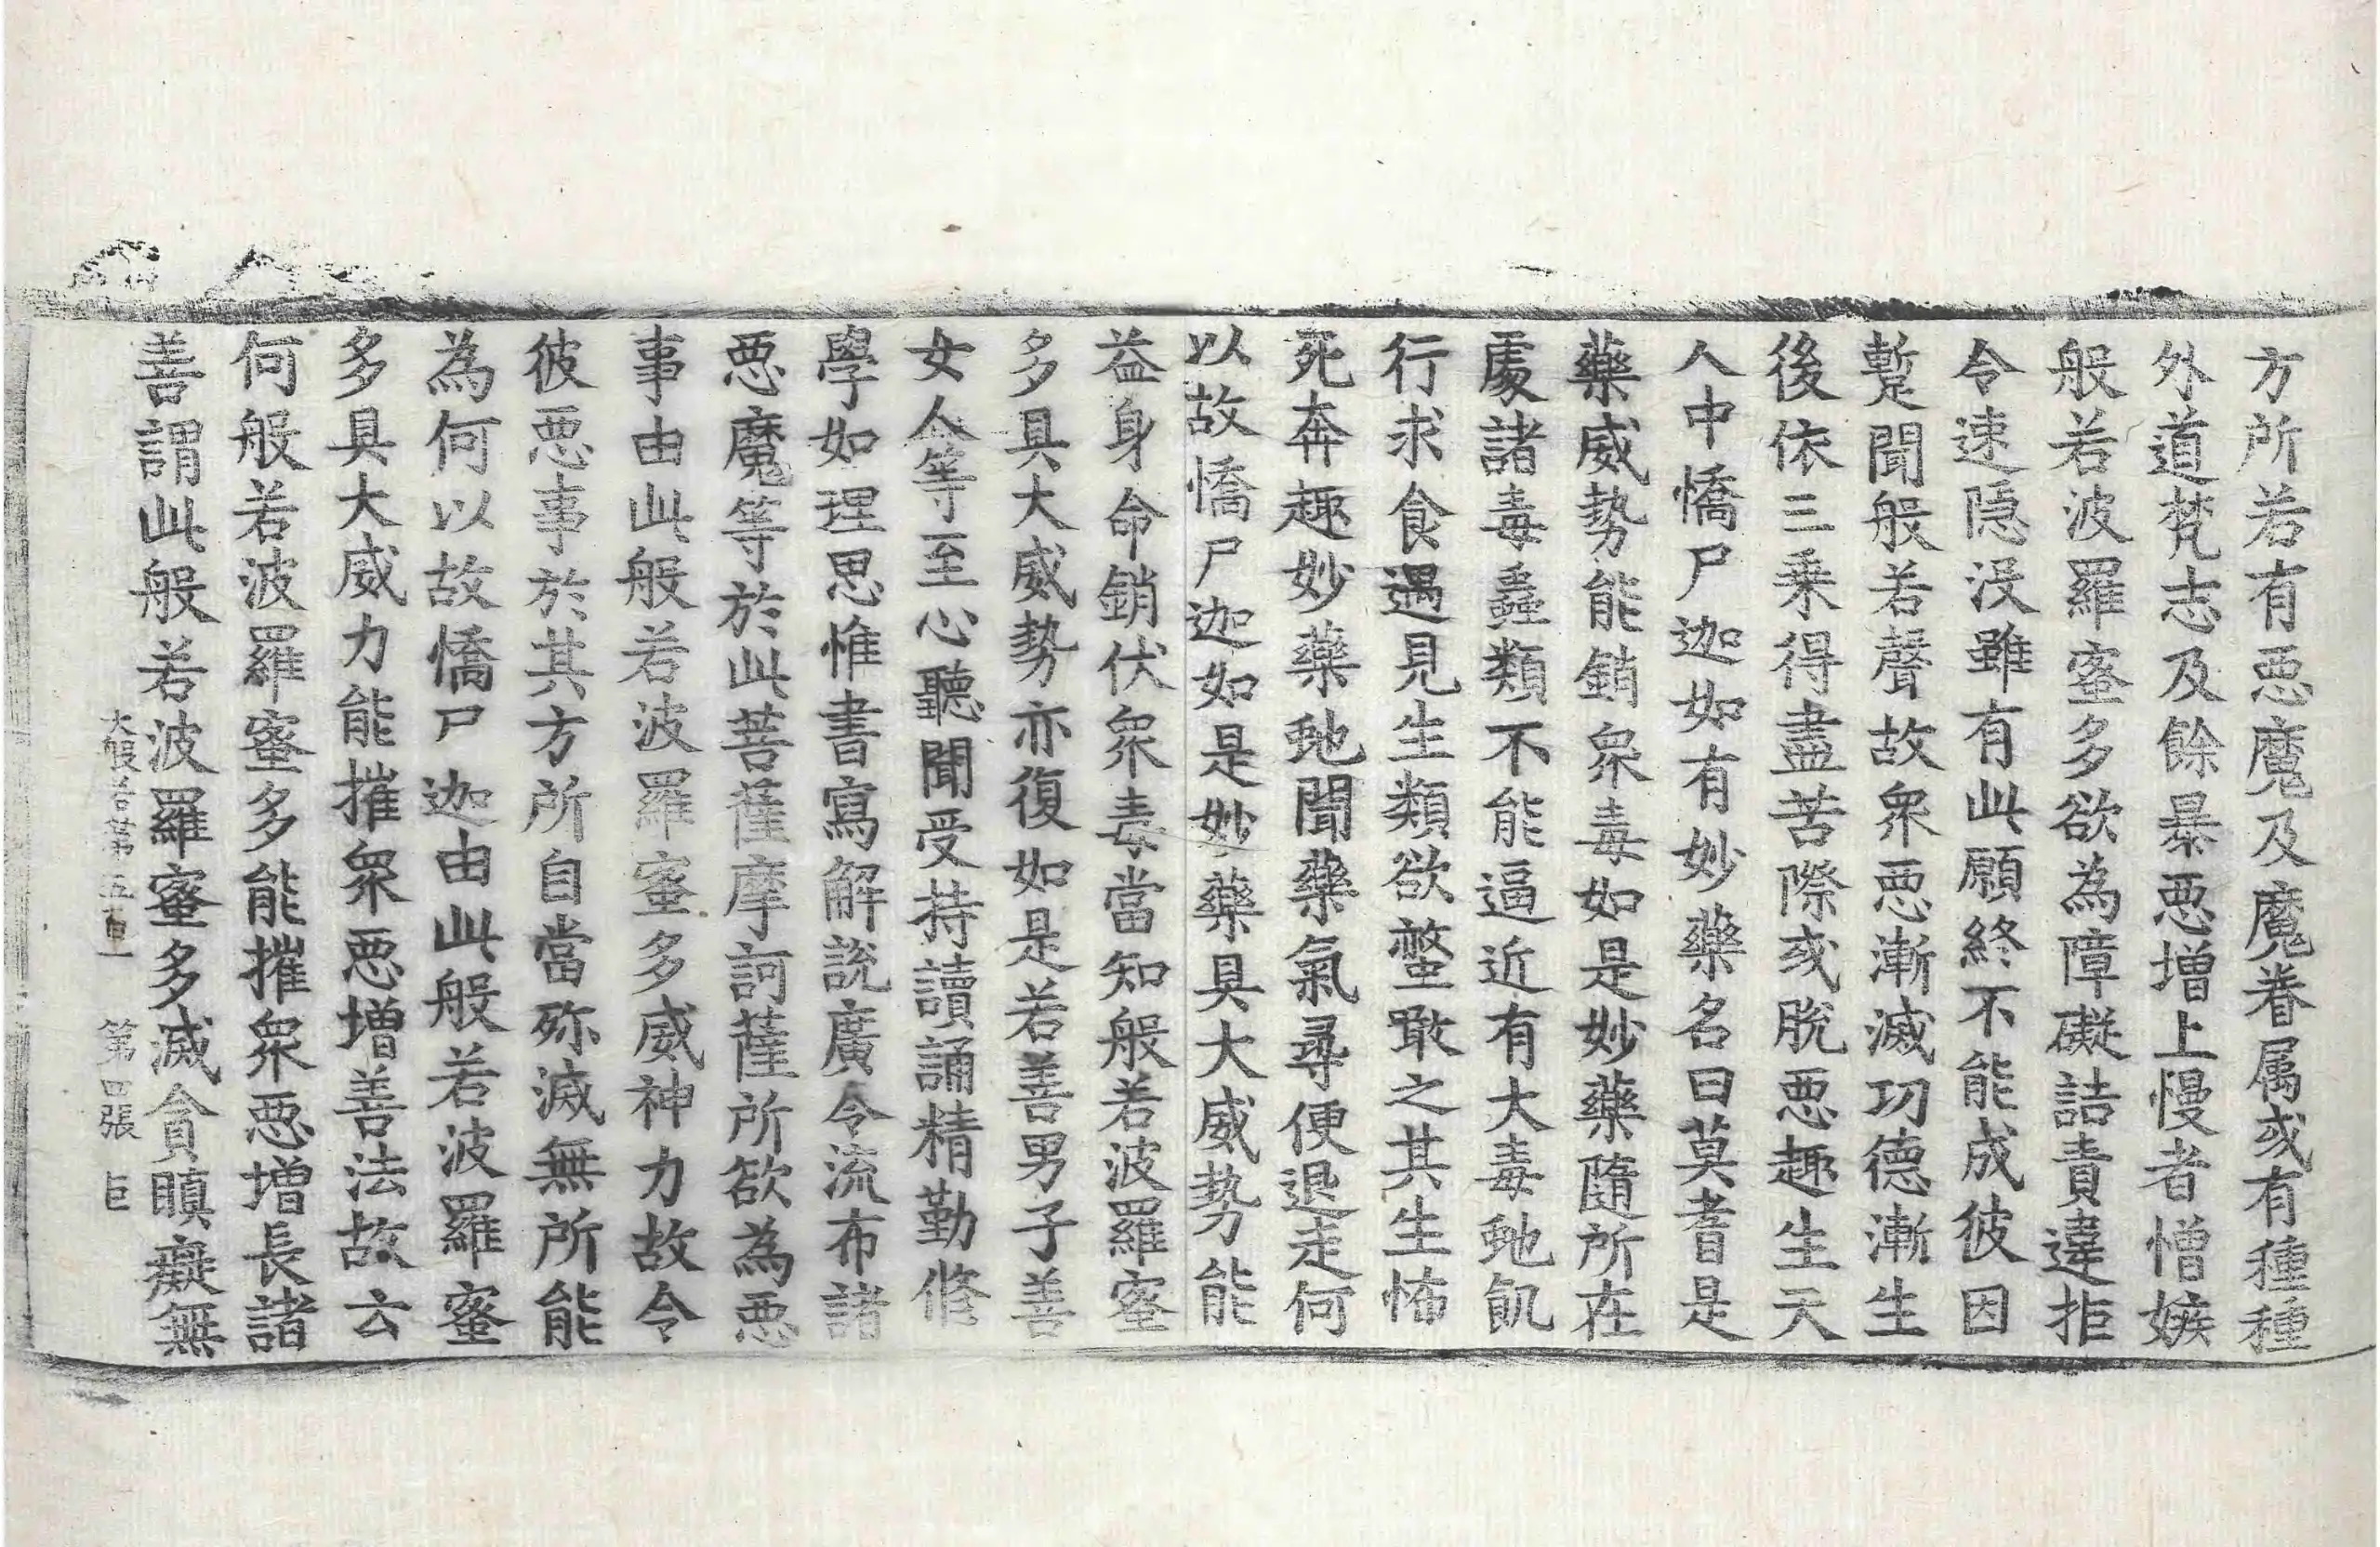 方所若有惡魔及魔眷属或有種種
外道梵志及餘暴惡增上慢者憎嫉
般若波羅蜜多欲為障礙詰責違拒
令速隱沒雖有此願終不能成彼因
蹔聞般若聲故衆惡漸滅功德漸生
後依三乘得盡苦際或脫惡趣生天
人中憍尸迦如有妙藥名曰莫耆是
藥威勢能銷衆毒如是妙藥隨所在
處諸毒蟲類不能逼近有大毒虵飢
行求食遇見生類欲螫噉之其生怖
死奔趣妙藥虵聞藥氣尋便退走何
以故憍尸迦如是妙藥具大威勢能
益身命銷伏衆毒當知般若波羅蜜
多具大威勢亦復如是若善男子善
女人等至心聽聞受持讀誦精勤修
學如理思惟書寫解說廣令流布諸
惡魔等於此菩薩摩訶薩所欲為惡
事由此般若波羅蜜多威神力故令
彼惡事於其方所自當殄滅無所能
為何以故憍尸迦由此般若波羅蜜
多具大威力能摧衆惡增善法故云
何般若波羅蜜多能摧衆惡增長諸
善謂此般若波羅蜜多滅貪瞋癡無
大般若第五百一 第四張 巨